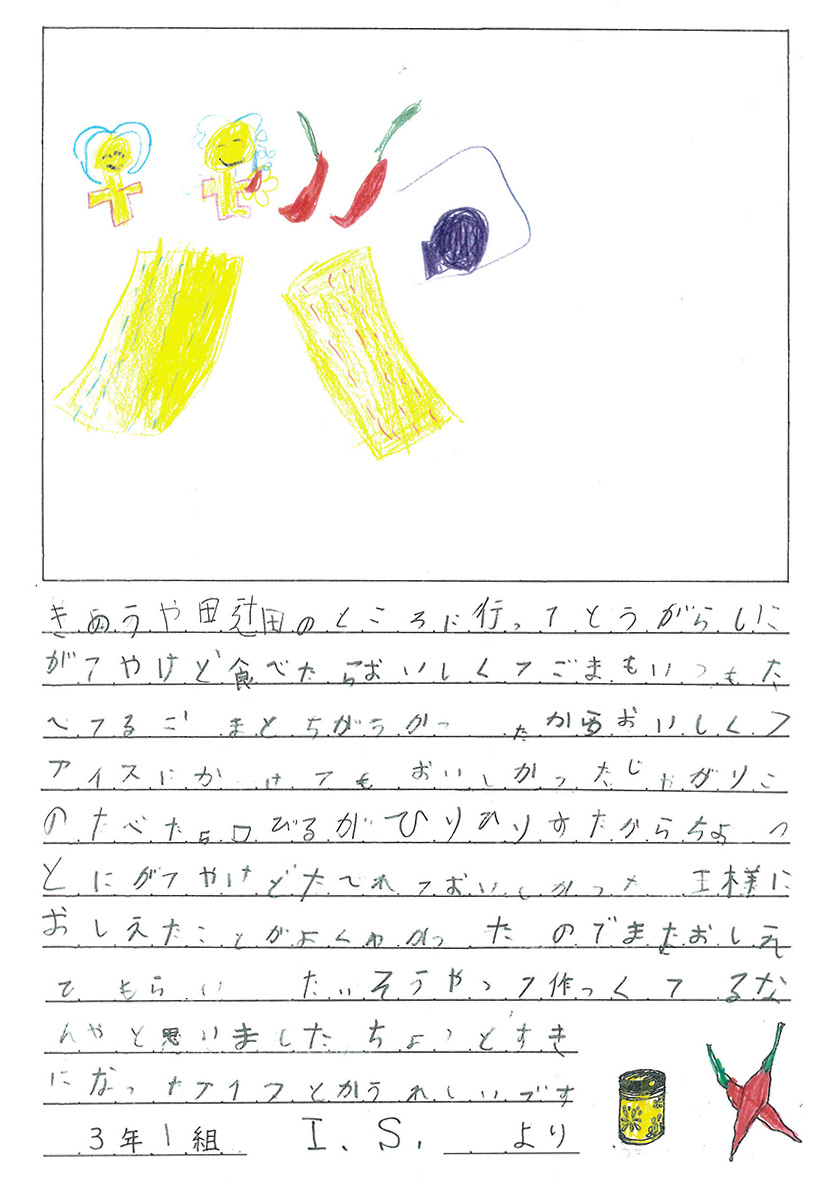 きのうや田辻田のところに行ってとうがらしに
がてやけど食べたらおいしくてごまもいつもた
べてるごまとちがうかったからおいしくて
アイスにかけてもおいしかったじゃがりこ
のたべたら口びるがひりひりすたからちょっ
とにがてやけどたべれておいしかった 王様に
おしえたことがよくわかったのでまたおしえ
てもらいたいそうやって作っくてるな
んやと思いましたちょっとすき
になったアイスとかうれしいです
3年1組 I.S. より